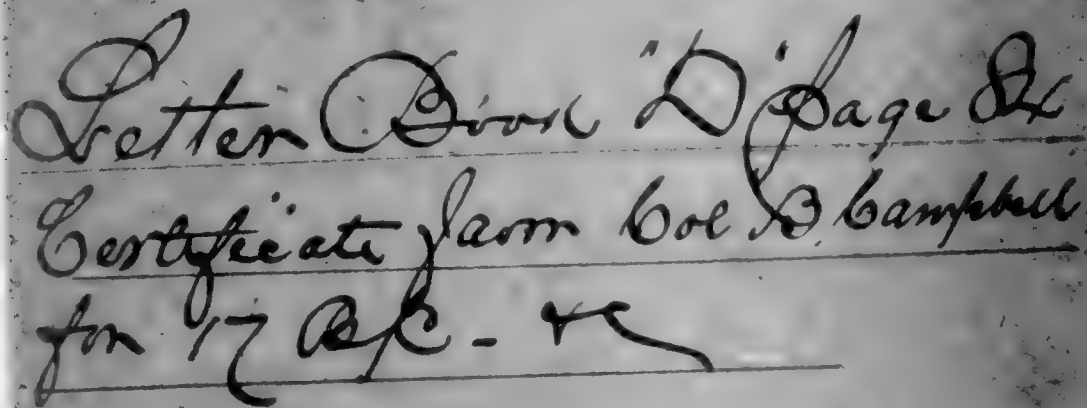 Letter Book "D" page 82
Certificate from Col B Campbell
for 17 B/C - &c